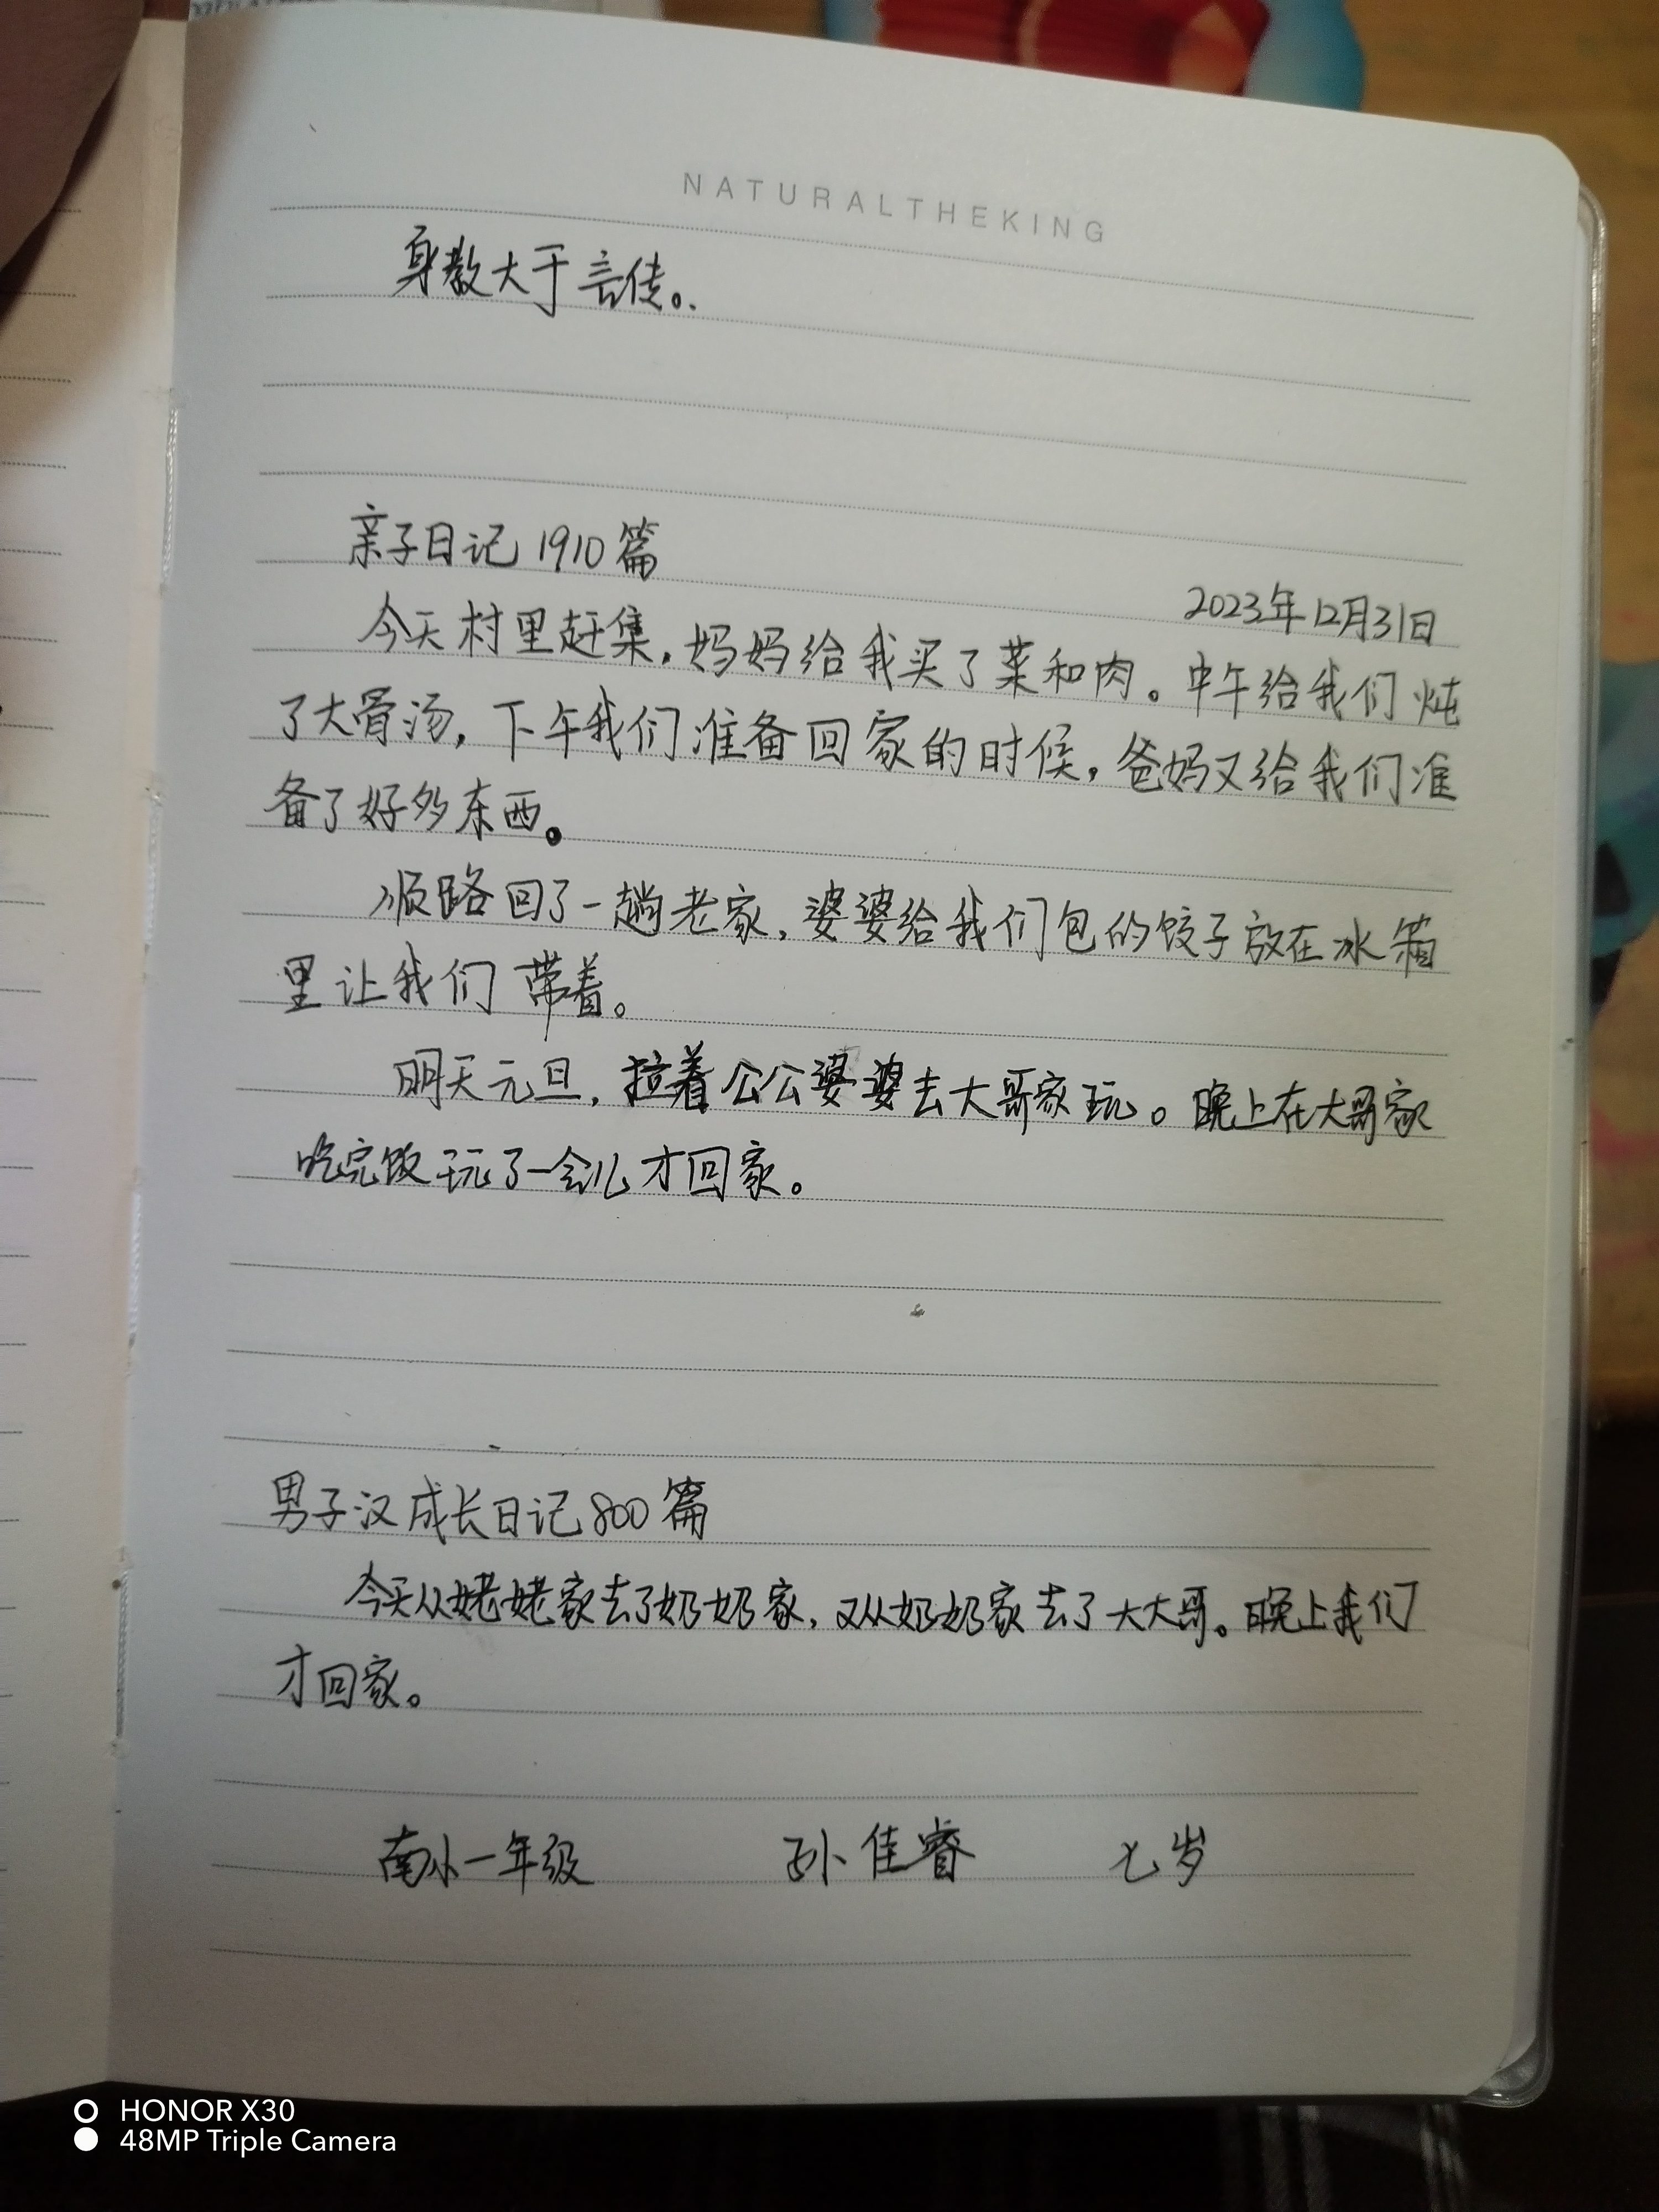 NATURALTHEKING
身教大于言传。.
亲子日记1910篇
2023年12月31日
今天村里赶集,妈妈给我买了菜和肉。中午给我们炖
了大骨汤,下午我们准备回家的时候,爸妈又给我们准
备了好多东西。
顺路回了一趟老家,婆婆给我们包的饺子放在冰箱
里让我们带着。
明天元旦,拉着公公婆婆去大哥家玩。晚上在大哥家
吃完饭玩了一会儿才回家。
男子汉成长日记800篇
今天从姥姥家去了奶奶家,又从奶奶家去了大大哥。晚上我们
才回家。
南小一年级 孙佳睿 七岁
HONOR X30
48MP Triple Camera